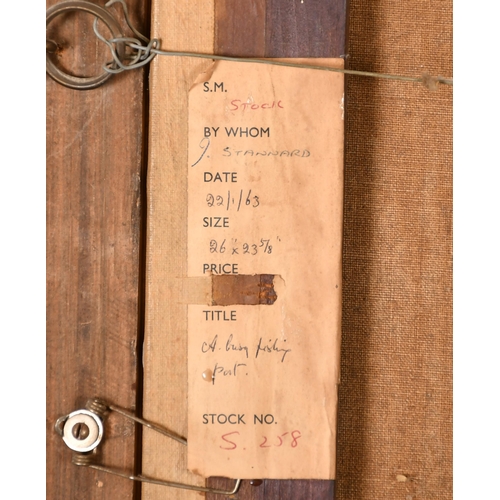 S.M.
STOCK
BY WHOM
J. STANNARD
DATE
22/1/63
SIZE
26" x 23 5/8"
PRICE
TITLE
A busy fishing
port.
STOCK NO.
S. 258